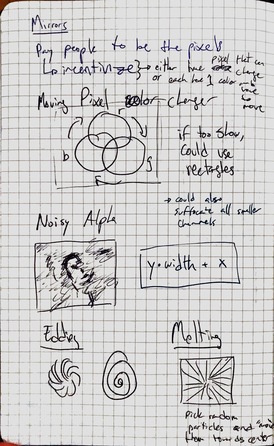 Mirrors
Pay people to be the pixels
↳ incentivize } → either have pixel that can change
or each has 1 color and have to move
Moving Pixel color changer
r
b
g
if too slow,
could use
rectangles
→ could also
suffocate all smaller
channels
Noisy Alpha
y•width + x
Eddies
Melting
pick random
particles and
them towards center